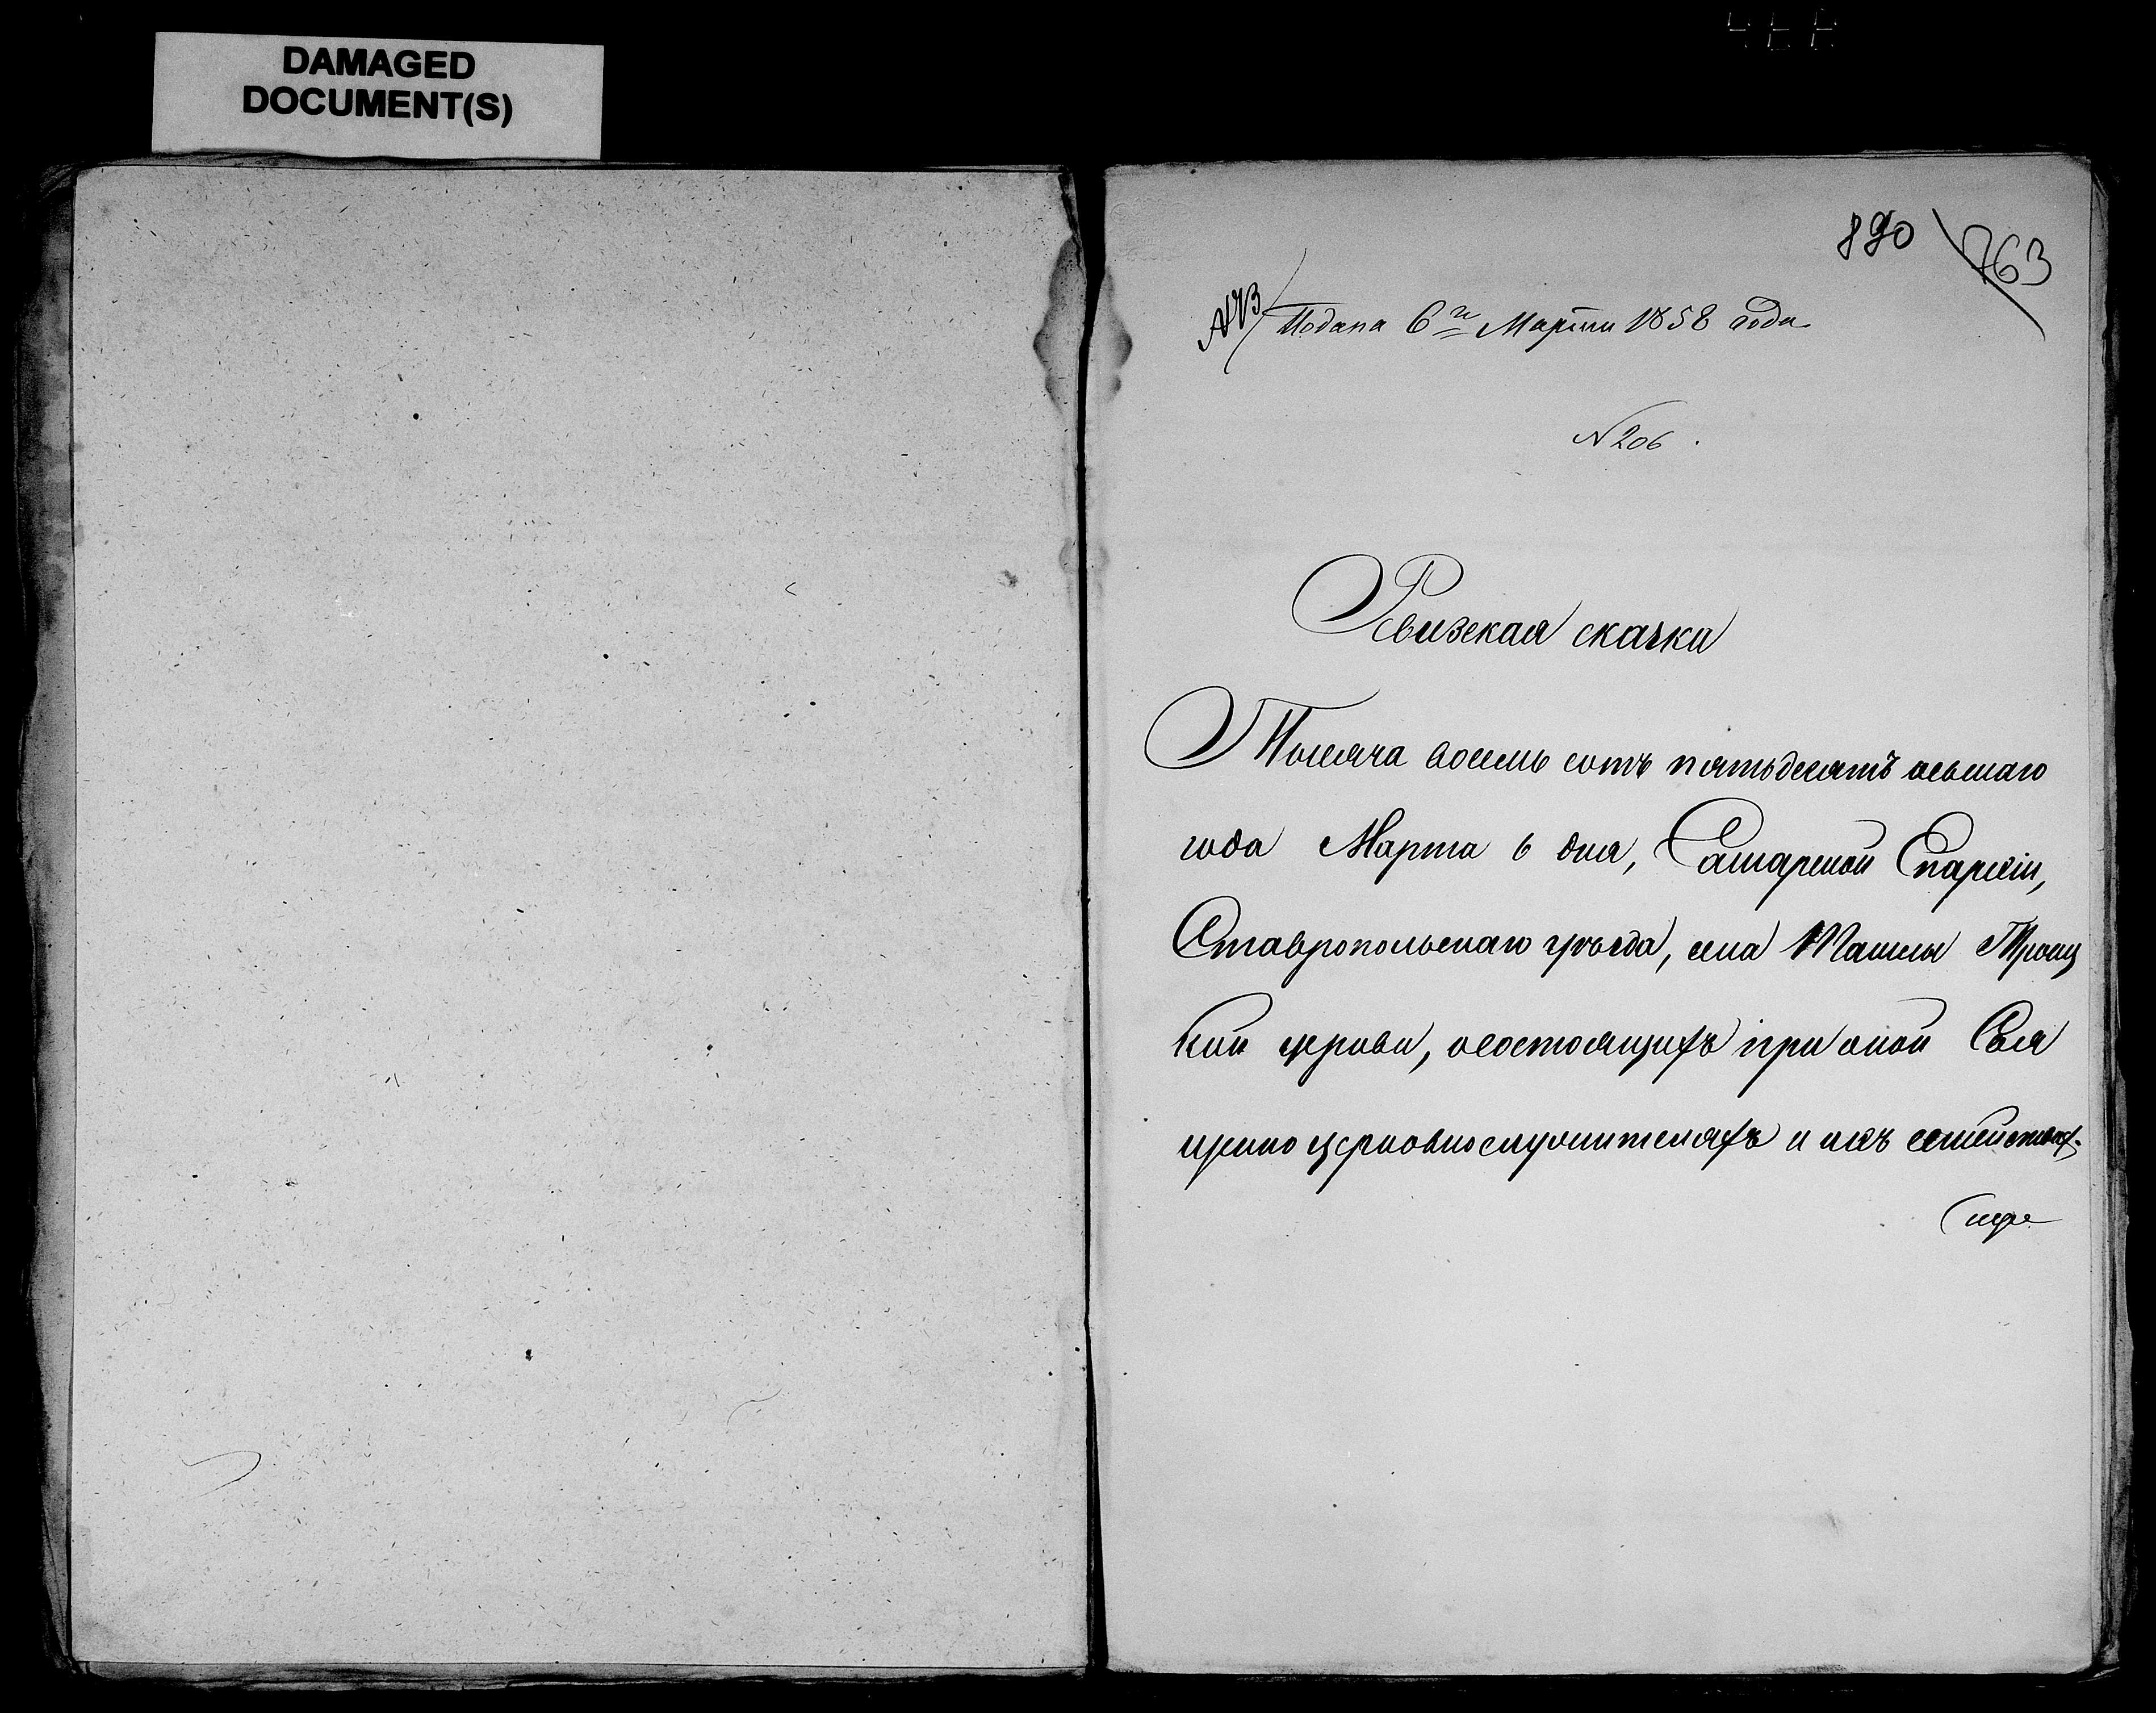 DAMAGED
DOCUMENT(S)
890 763
Подана 6го Марта 1858 года
N 206.
Ревизская скаска
Тысяча восемь сотъ пятьдесятъ осьмаго
года Марта 6 дня, Самарской Епархіи,
Ставропольскаго уѣзда, села Ташлы Троиц
кой церкви, о состоящихъ при оной Свя
щенно церковнослужителяхъ и ихъ семействах.